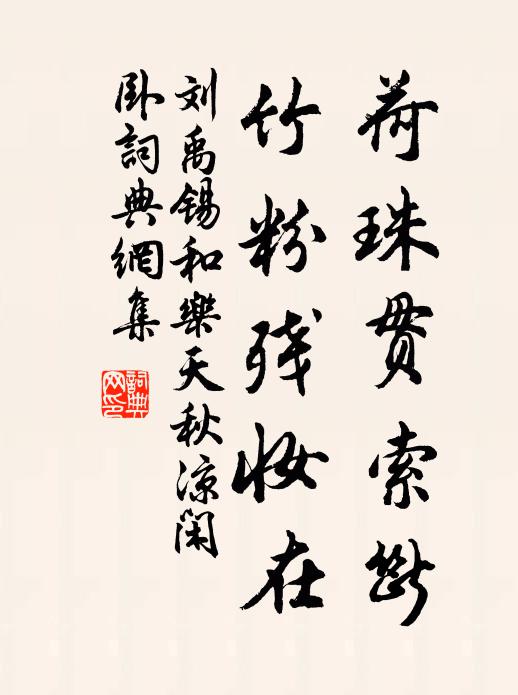 荷珠贯索断
竹粉残妆在
刘禹锡和樂天秋凉闲
卧詞典網集
詞典网印